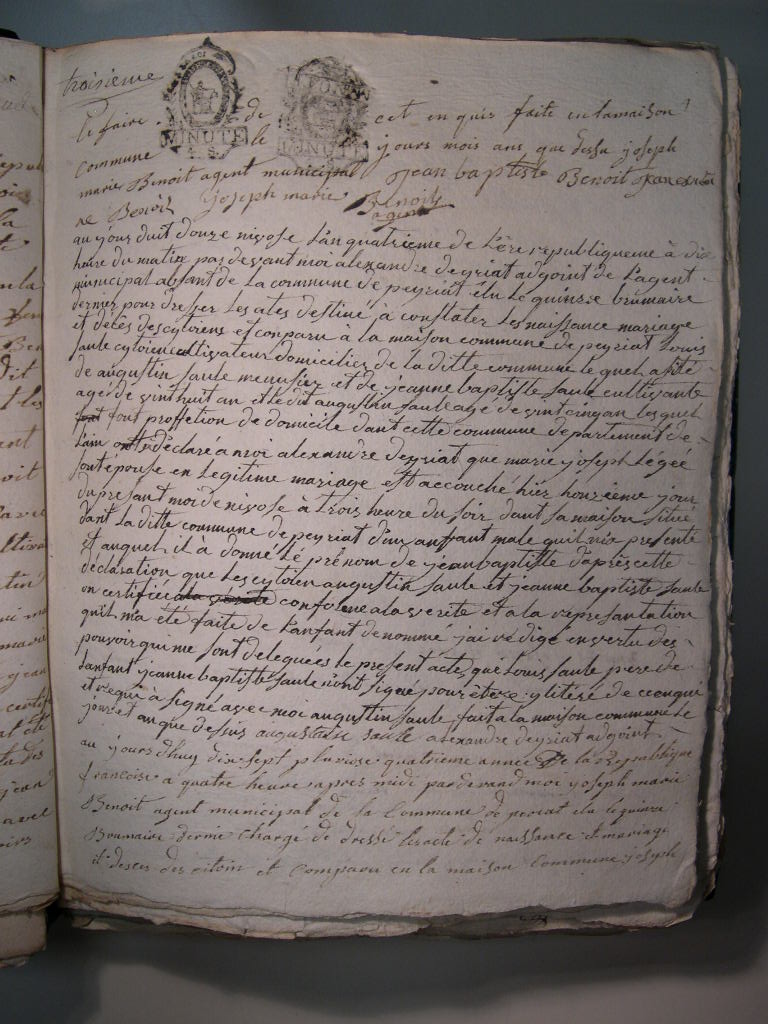 troisieme
MINUTE MINUTE
le faire de cet en quis faite en lamaison
commune le jours mois ans que dessu joseph
marie Benoit agent municipal jean baptiste Benoit
ne Benoit joseph marie Benoit
agent
au jour duit douze nivose lan quatrieme de lere republiquene à dix
heure du matin pas devant moi alexandre deyriat adjoint de lagent
municipal absant de la commune de peyriat élu le quinze brumaire
dernier pour dresser les ates destiné à constater les naissance mariage
et décés des cytoiens est conparu à la maison commune de peyriat louis
saule cytoien cultivateur domicilier de la ditte commune le quel asité
de augustin saule menusier et de jeanne baptiste saule cultivante
agéé de vint huit an et le dit augustin saule age de vint cinq an lesquel
font proffetion de domicile dant cette commune departement de
lain ont déclaré a moi alexandre deyriat que marie joseph légée
son epouse en legitime mariage est accouché hier honzième jour
du present moi de nivose à trois heure du soir dant sa maison situé
dant la ditte commune de peyriat dun anfant male quil ma presenté
et auquel il à donné le prénom de jean baptiste daprès cette
déclaration que les cytoien augustin saule et jeanne baptiste saule
on certifiéé a la verité conforme a la verité et a la représantation
quil ma été faite de lanfant denomme jai rédigé en vertu des
pouvoir qui me sont deleguées le present acte que louis saule pere de
lanfant jeanne baptiste saule nont signé pour être ylitéré de ce enqui
et requi à signé avec moi augustin saule fait a la maison commune le
jour et an que dessus augustain saule alexandre deyriat adjoint
au jours dhuy dix sept pluviose quatrieme année de la Republique
francoise a quatre heure apres midi par devand moi joseph marie
Benoit agent municipal de la Commune de peyriat elu le quinze
Brumaire dernié chargé de dressé lesacte de naissance et mariage
et deces des citoin et Comparu en la maison Commune joseph